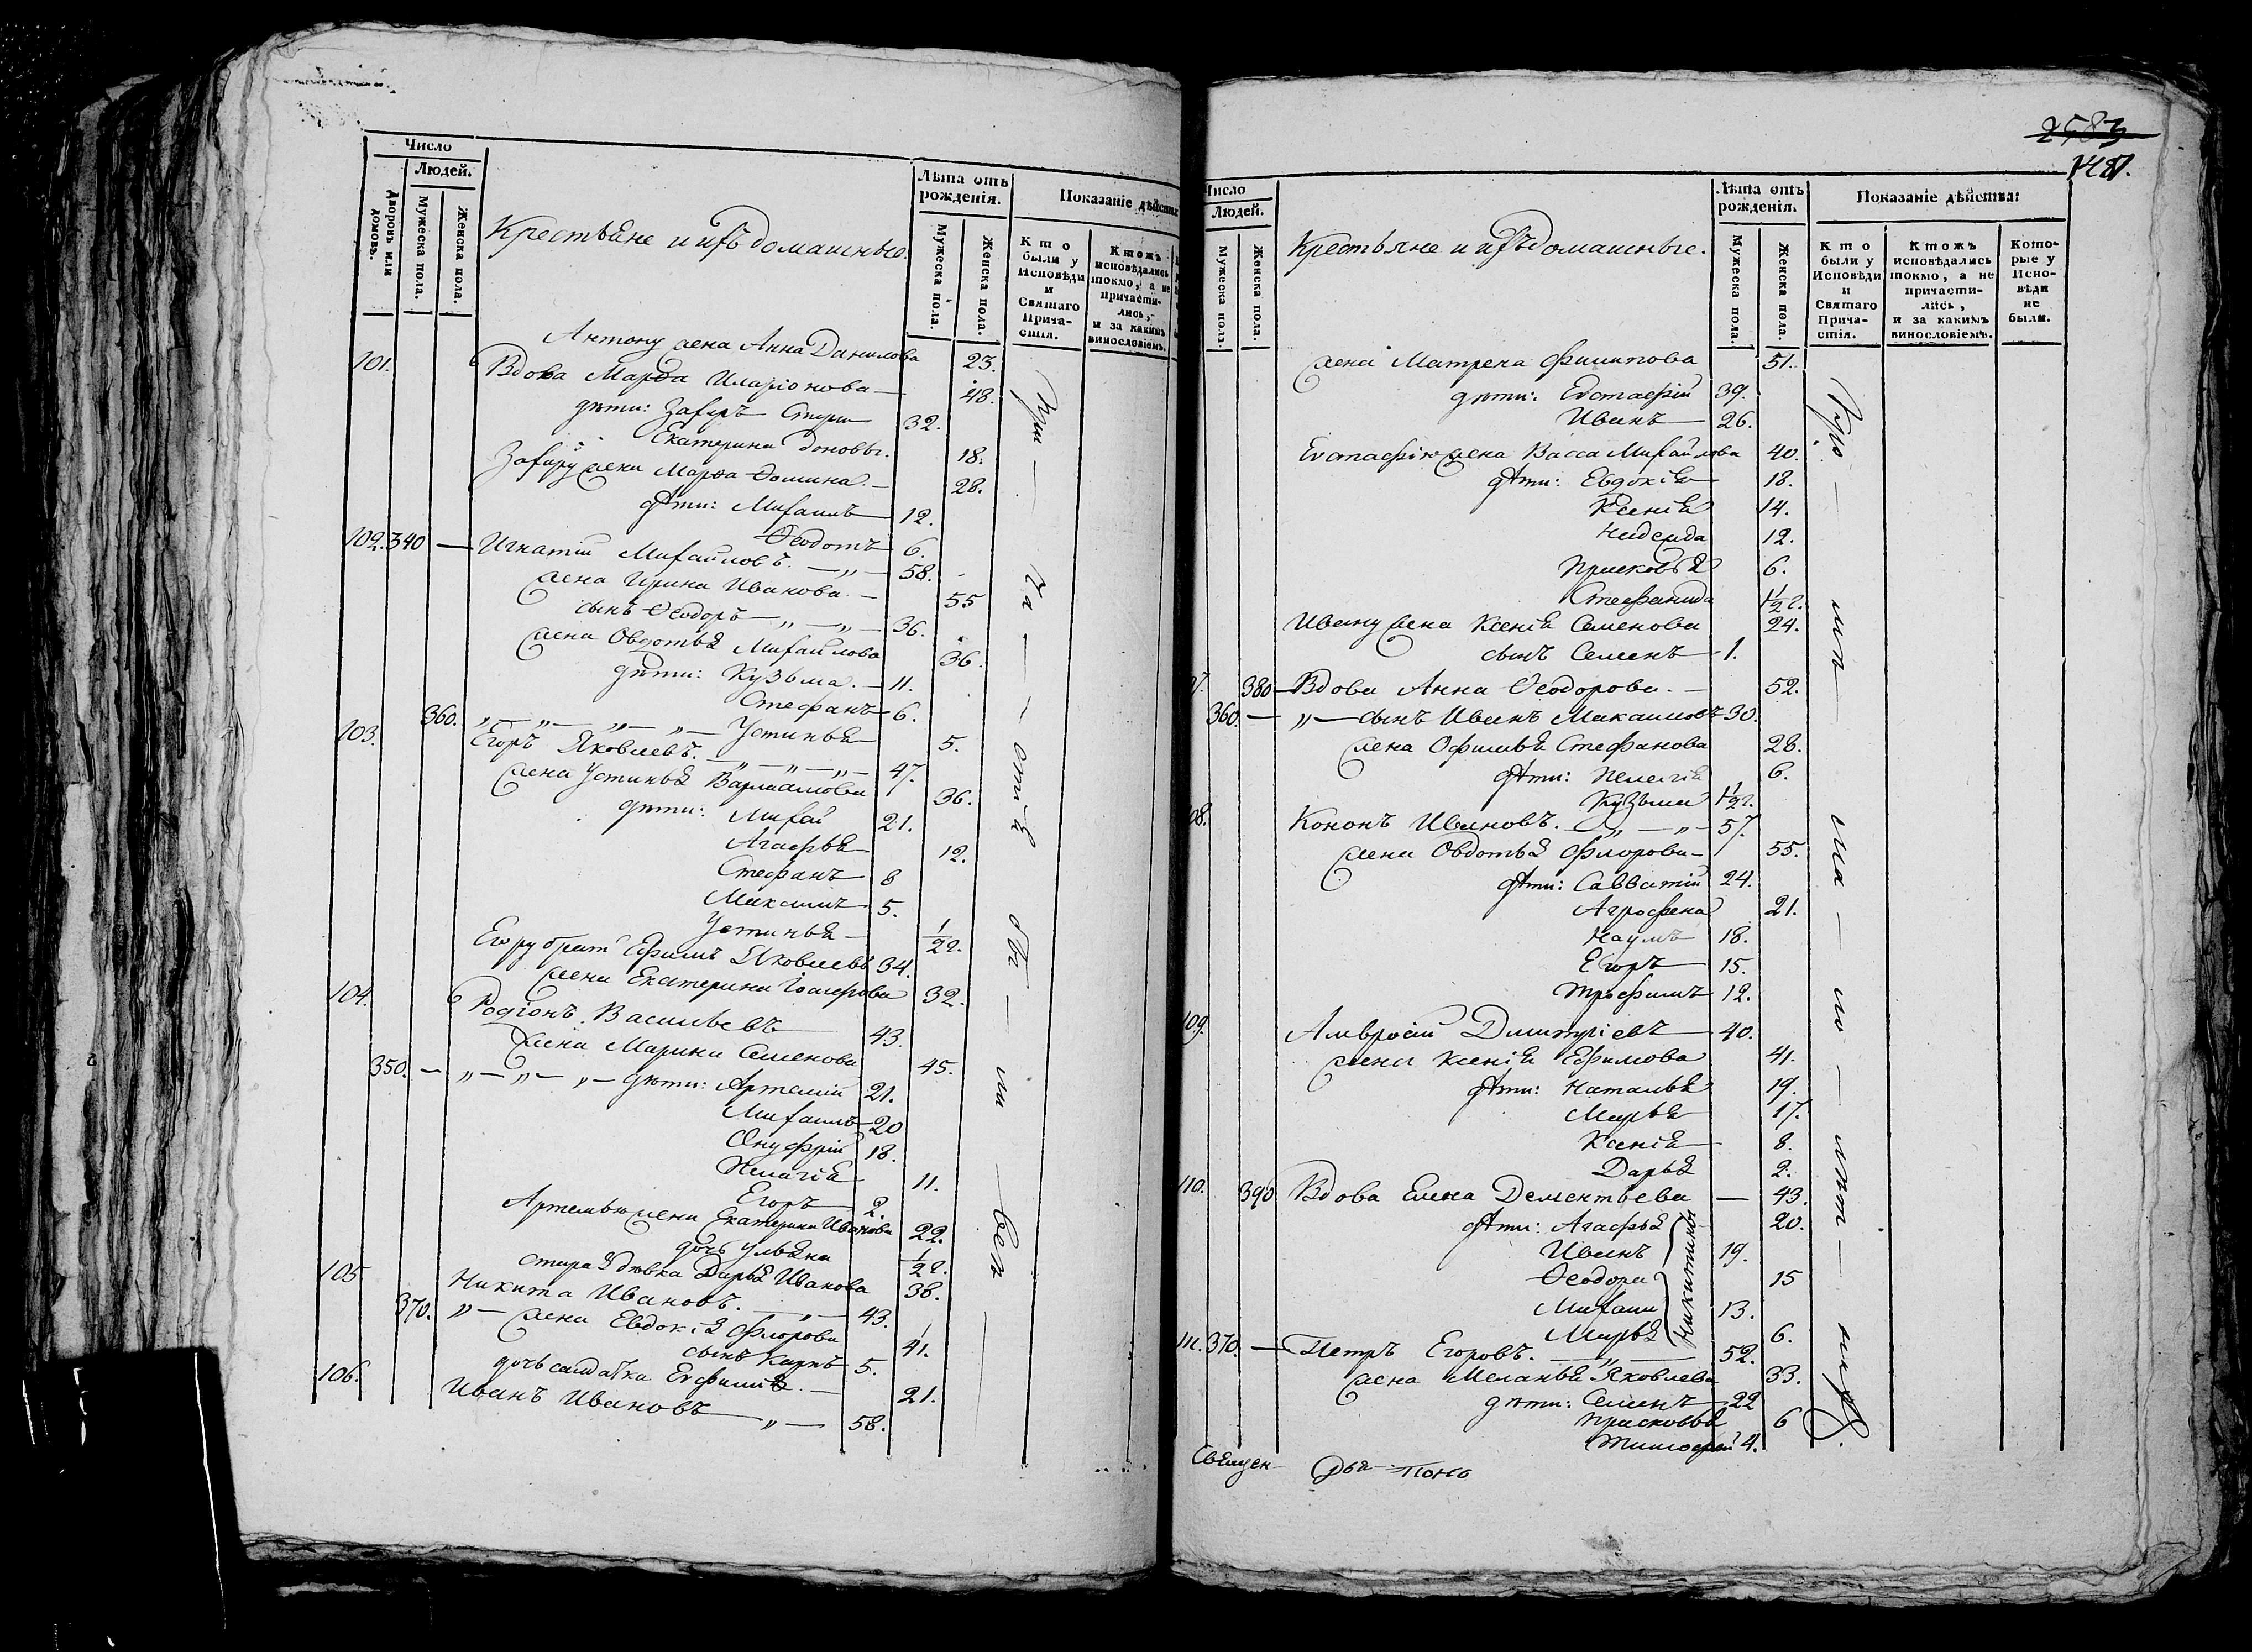 Число
Людей.
Дворовъ или домовъ.
Мужеска пола.
Женска пола.
Крестьяне и ихъ домашные.
Лѣта отъ рожденія.
Мужеска пола.
Женска пола.
Показаніе дѣйства
Кто были у Исповѣди и Святаго Причастія.
Ктожъ исповѣдались токмо, а не причастились, и за какимъ винословіемъ.
Антону жена Анна Данилова 23.
101. Вдова Марѳа Иларіонова — 48.
дѣти: Захаръ 32.
Екатерина 18.
Захару жена Марѳа Ѳомина — 28.
дѣти: Михаилъ 12.
Ѳеодотъ 6.
102. 340 — Игнатій Михайловъ. — „ — 58.
жена Ирина Иванова — 55
сынъ Ѳеодоръ — „ — „ — 36.
жена Овдотья Михайлова 36.
дѣти: Кузьма. — 11.
Стефанъ 6.
360. „ — „ — „ — „ — Устинья 5.
103. Егоръ Яковлевъ. — „ — „ — „ — 47.
жена Устинья Варлаамова 36.
дѣти: Михай 21.
Агафья 12.
Стефанъ 8
Максимъ 5.
Устинья — 1/2 г.
Егору братъ Ефимъ Яковлевъ 34.
жена Екатерина Іосифова 32.
104. Родіонъ Васильевъ 43.
жена Марина Семенова 45.
350. — „ — „ — „ — дѣти: Артемій 21.
Михаилъ 20
Онуфрій 18.
Пелагія 11.
Егоръ 2.
Артемью жена Екатерина Иванова 22.
дочь Ульяна 1/2 г.
стара дѣвка Дарья Иванова 38.
105 Никита Ивановъ. — „ — 43.
370. „ — жена Евдокія Флорова 41.
сынъ Карпъ 5.
дочь салдатка Евфимія. — 21.
106. Иванъ Ивановъ — „ — 58.
2583
1487.
Число
Людей.
Мужеска пола.
Женска пола.
Крестьяне и ихъ домашные.
Лѣта отъ рожденія.
Мужеска пола.
Женска пола.
Показаніе дѣйства:
Кто были у Исповѣди и Святаго Причастія.
Ктожъ исповѣдались токмо, а не причастились, и за какимъ винословіемъ.
Которые у Исповѣди не были.
жена Матрена Филипова 51.
дѣти: Евстафій 39.
Иванъ 26.
Евстафію жена Васса Михайлова 40.
дѣти: Евдокія 18.
Ксенія 14.
Надежда 12.
Прасковья 6.
Стефанида 1 1/2 г.
Ивану жена Ксенія Семенова 24.
сынъ Семенъ 1.
07. 380 — Вдова Анна Ѳеодорова. — 52.
360. — „ — сынъ Иванъ Макаимовъ 30.
жена Офимья Стефанова 28.
дѣти: Пелагія 6.
Кузьма 1 1/2 г.
08. Кононъ Ивановъ. — „ — „ — 57.
жена Овдотья Флорова — 55.
дѣти: Савватій 24.
Агрофена 21.
Наумъ 18.
Егоръ 15.
Трофимъ 12.
109. Амвросій Димитріевъ 40.
жена Ксенія Ефимова 41.
дѣти: Наталья 19.
Марья 17.
Ксенія 8.
Дарья 2.
110. 390 Вдова Елена Дементьева — 43.
дѣти: Агафья 20.
Иванъ 19.
Ѳеодора 15
Михаил 13.
Марья 6.
Никитины
111. 370. — Петръ Егоровъ. — „ — 52.
жена Меланья Яковлева 33.
дѣти: Семенъ 22
Прасковья 6
Тимофей 4.
Священ